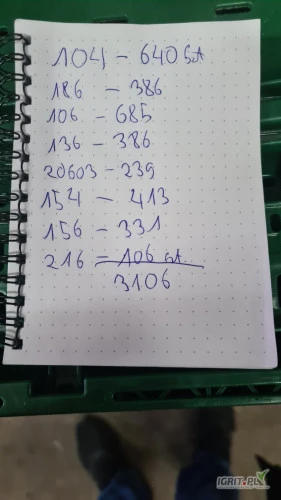 104 - 640 szt
186 - 386
106 - 685
136 - 386
20603 - 239
154 - 413
156 - 331
216 - 106 szt.
3106
IGRIT.PL